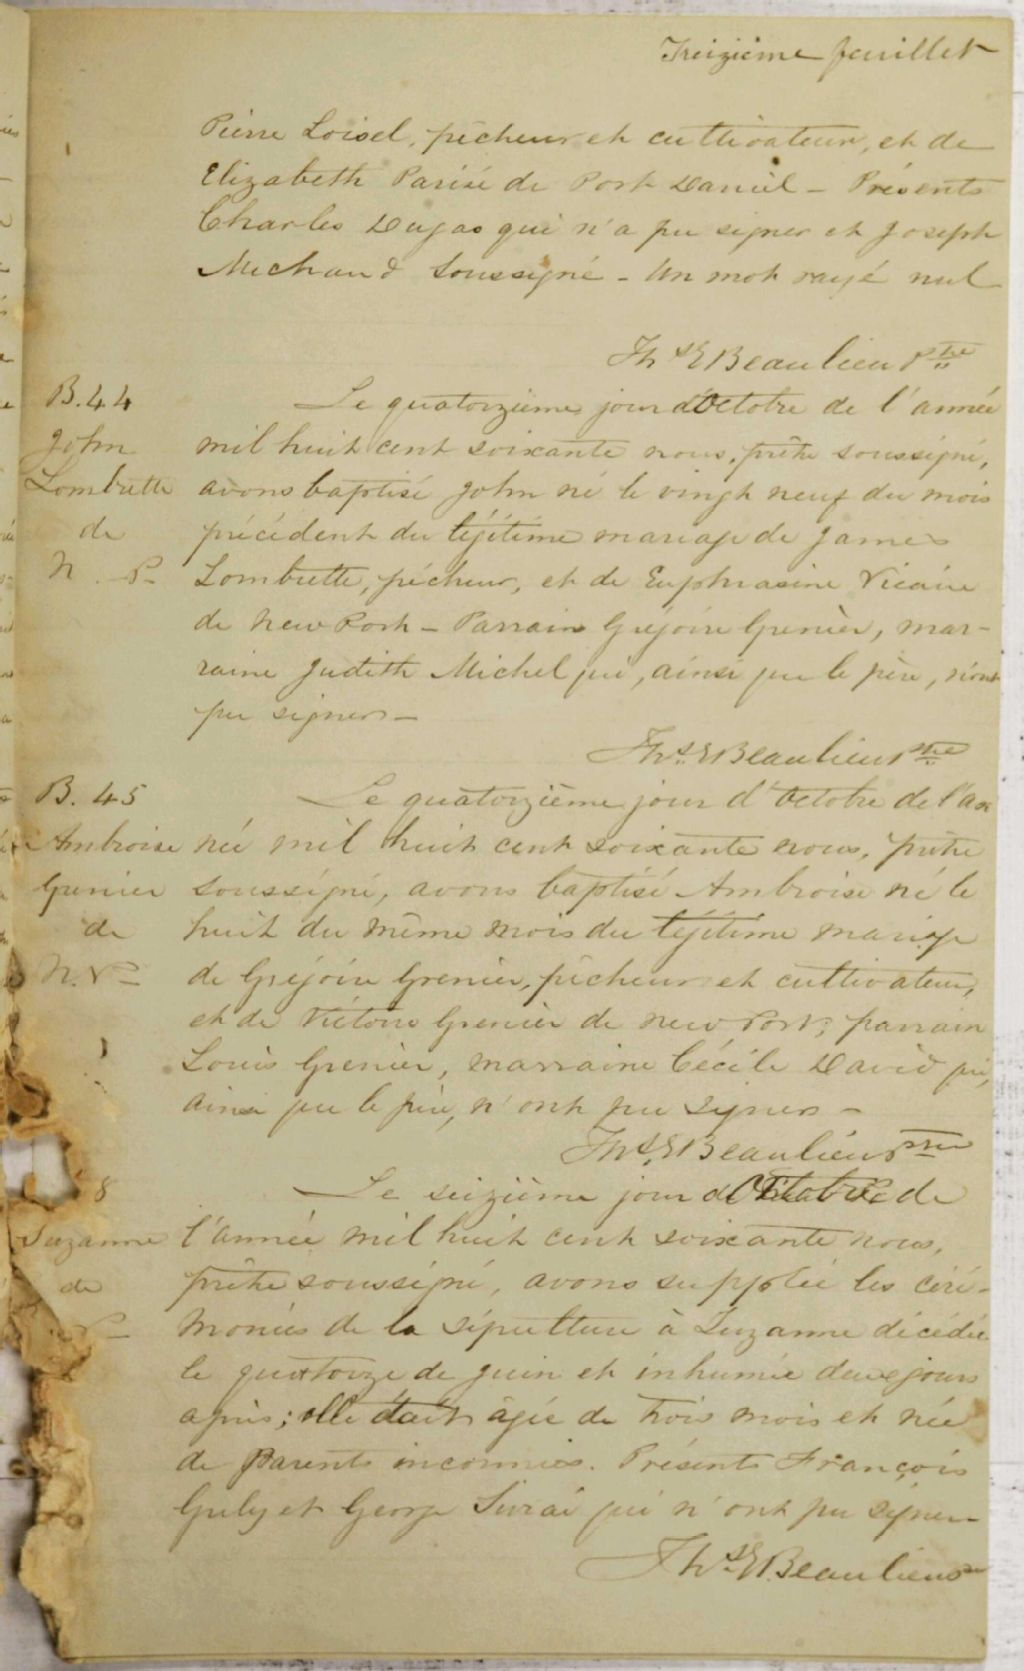 Treizième feuillet
Pierre Loisel, pêcheur et cultivateur, et de
Elizabeth Parisé de Port Daniel - Présents
Charles Dugas qui n'a pu signer et Joseph
Michaud soussigné - Un mot rayé nul
Ths E Beaulieu Ptre
B.44
John
Lombrette
de
N. P.
Le quatorzième jour d'Octobre de l'année
mil huit cent soixante nous, prêtre soussigné,
avons baptisé John né le vingt neuf du mois
précédent du légitime mariage de James
Lombrette, pêcheur, et de Euphrasine Vicaire
de New Port - Parrain Grégoire Grenier, mar-
raine Judith Michel qui, ainsi que le père, n'ont
pu signer -
Ths E Beaulieu Ptre
B. 45
Ambroise
Grenier
de
N. P.
Le quatorzième jour d'Octobre de l'an
née mil huit cent soixante nous, prêtre
soussigné, avons baptisé Ambroise né le
huit du même mois du légitime mariage
de Grégoire Grenier, pêcheur et cultivateur,
et de Victoire Grenier de New Port; parrain
Louis Grenier, marraine Cécile David qui,
ainsi que le père, n'ont pu signer -
Ths E Beaulieu Ptre
8
Suzanne
de
P.
Le seizième jour d'Octobre de
l'année mil huit cent soixante nous,
prêtre soussigné, avons suppléé les céré-
monies de la sépulture à Suzanne décédée
le quatorze de juin et inhumée deux jours
après; elle était âgée de trois mois et née
de Parents inconnus. Présents François
et George qui n'ont pu signer
Ths E Beaulieu